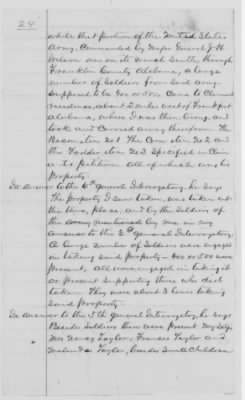 24
while that portion of the United States
Army, Commanded by Major General J H
Wilson was on its march South, through
Franklin County Alabama, a large
number of Soldiers from said Army
Supposed to be 400 or 500, Came to Claimants
residence, about 2 miles west of Frankfort
Alabama, where I was then living, and
took and Carried away therefrom The
Bacon, item No 1 The Corn item No 2 and
the Fodder item No 3 Specified in Claim
ants Petition All of which was his
Property
In answer to the 4th General Interrogatory, he Says
The property I saw taken, was taken at
the time, place, and by the Soldiers of
the army mentioned by me in my
answer to the 3rd general Interrogatory.
A large number of Soldiers were engaged
in taking said property— 400 or 500 were
present, All were engaged in taking it
or present supporting those who did
take it. They were about 3 hours taking
said property
In answer to the 5th general Interrogatory, he says
Besides Soldiers there were present Myself,
Mrs Nancy Taylor, Francis Taylor and
Malinda Taylor, besides Small Children